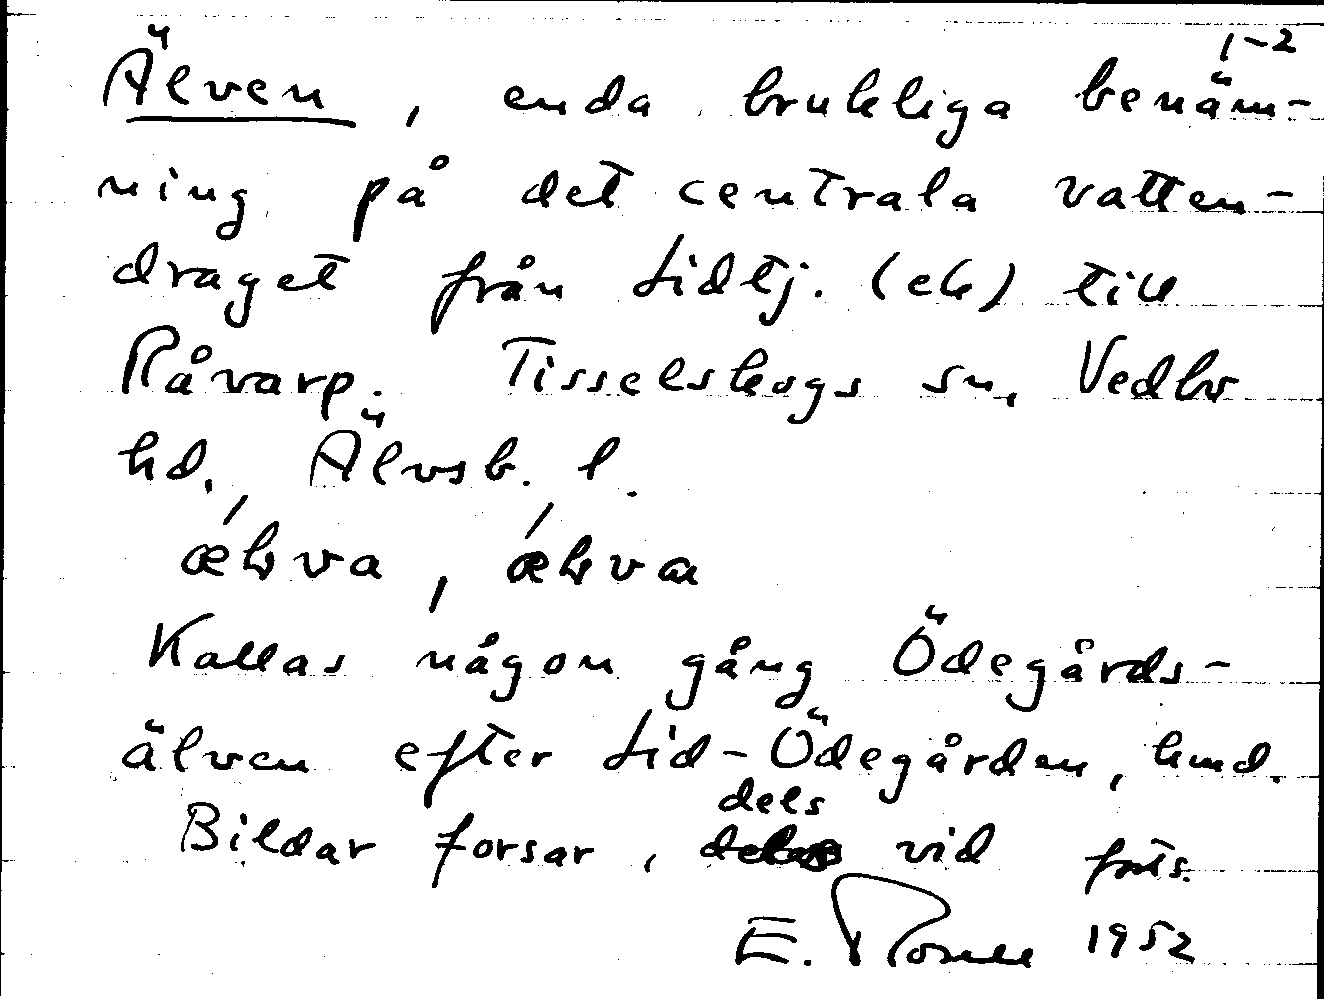 1-2
Älven, enda brukliga benäm-
ning på det centrala vatten-
draget från Lidtj. (ek) till
Råvarp. Tisselskogs sn, Vedbo
hd. Älvsb. l.
Kallas någon gång Ödegårds-
älven efter Lid-Ödegården, hmd.
dels
Bildar forsar, vid forts.
E. 1952